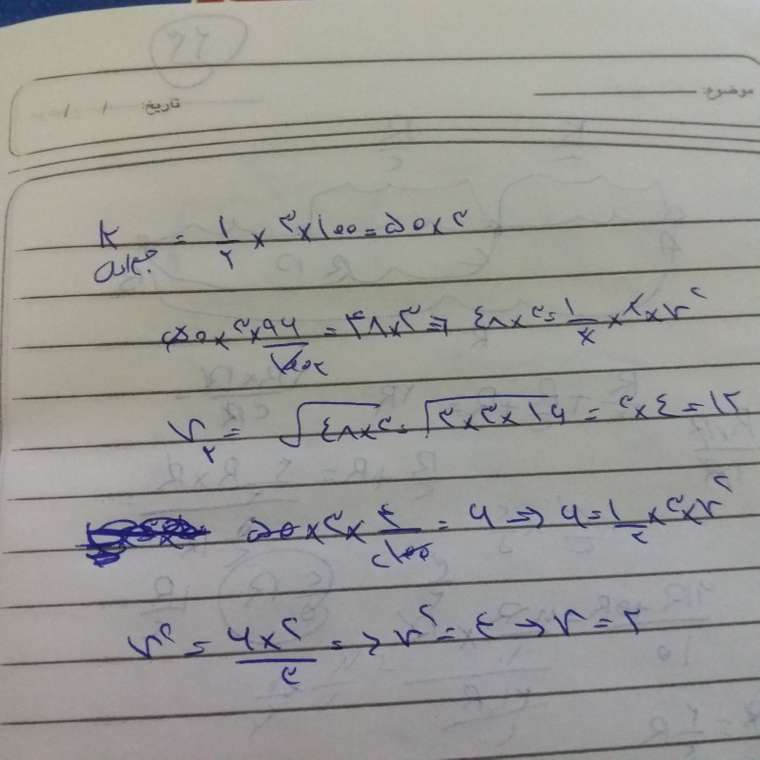 موضوع:
تاریخ: / /
K = ۱/۲ × ۳×۱۰۰ = ۵۰×۳
۵۰×۳×۹۶/۱۰۰ = ۴۸×۳ ⇒ ۴۸×۳ = ۱/۲ × ۲ × V²
V₂ = √۴۸×۳ = √۳×۳×۱۶ = ۳×۴ = ۱۲
۵۰×۳×۴/۱۰۰ = ۶ → ۶ = ۱/۲ × ۳ × V²
V² = ۶×۲/۳ ⇒ V² = ۴ → V = ۲